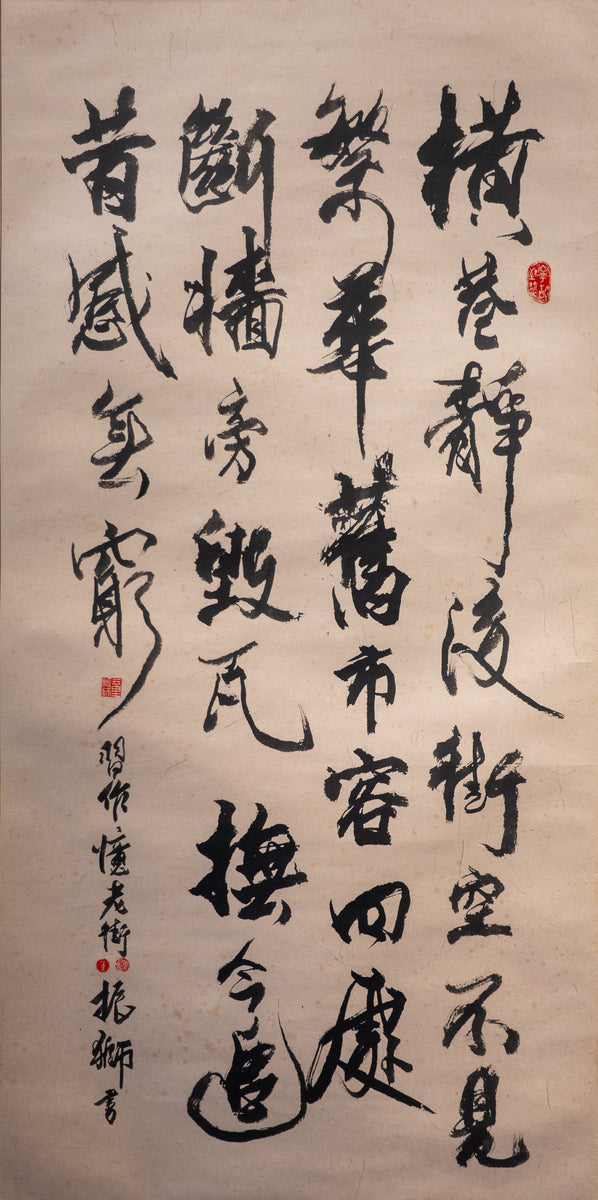 橫巷靜後街空不見
繁華舊市容四處
斷牆旁毀瓦撫今追
昔感無窮
習作憶老街振獅書